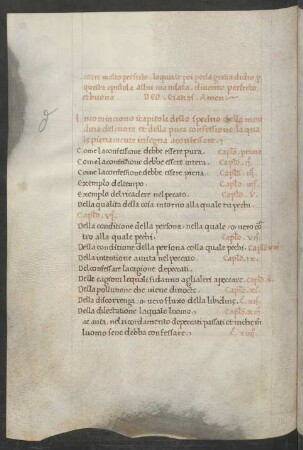 uno molto perfeto. loquale poi perla gratia didio p
questa epistola
et buono. DEO. Gratias. Amen.
Incominciono icapitoli dello specchio della mon
ditia del cuore et della pura confessione. la qua
le pienamente insegna aconfessare.
Come laconfessione debbe essere pura. Caplo. primo
Come laconfessione debbe essere intera. Caplo. ii.
Come laconfessione debbe essere piena. Caplo. iii.
Exemplo deltempo. Caplo. iiii.
Exemplo delricadere nel pecato. Caplo. v.
Della qualita della cosa intorno alla quale tu pechi.
Caplo. vi.
Della conditione della persona, nella quale, o vero cō
tro alla quale pechi. Caplo. vii.
Della conditione della persona colla quale pechi. Caplo. viii
Della intentione auuta nel pecato. Caplo. ix.
Del confessare lacagione depeccati. Caplo. x.
Delle cagioni lequale si danno aglialtri apeccare. Caplo. xi.
Della pollutione che viene di nocte. Caplo. xii.
Della discorrenga, o vero fluxo della libidine. C. xiii.
Della dilectatione laquale luomo. Caplo. xiiii.
ae auta, nel ricordamento depeccati passati et inche mō
luomo sene debba confessare. C. xiiii.